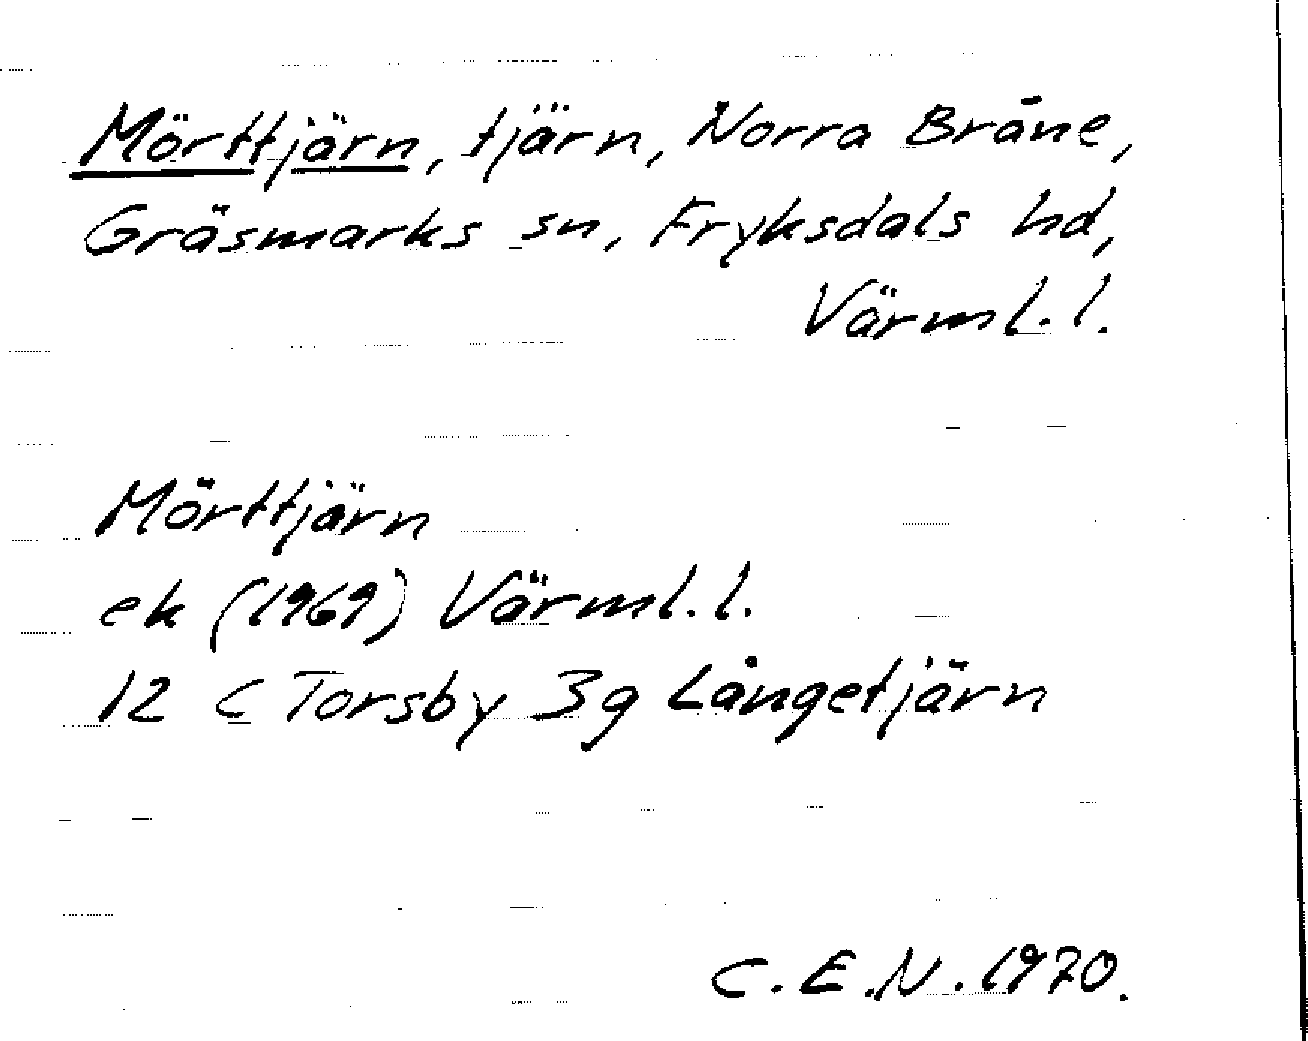 Mörttjärn, tjärn, Norra Bråne,
Gräsmarks sn, Fryksdals hd,
Värml. l.
Mörttjärn
ek (1969) Värml. l.
12 C Torsby 3g Långetjärn
C. E. N. 1970.